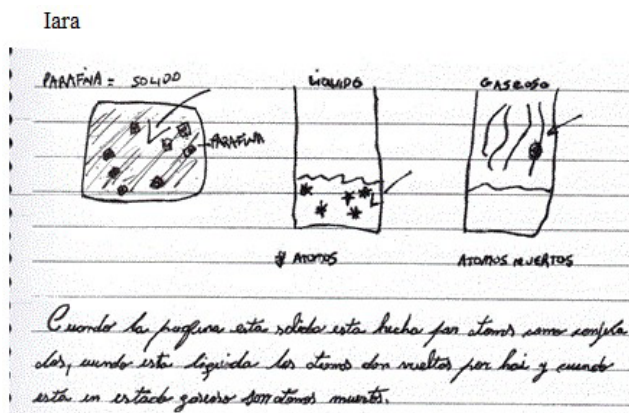 Iara
PARAFINA = SOLIDO
LIQUIDO
GASEOSO
PARAFINA
* ATOMOS
ATOMOS MUERTOS
Cuando la parafina esta solida esta hecha por atomos como conjela
dos, cuando esta liquida los atomos dan vueltas por hai y cuando
está en estado gaseoso son atomos muertos.